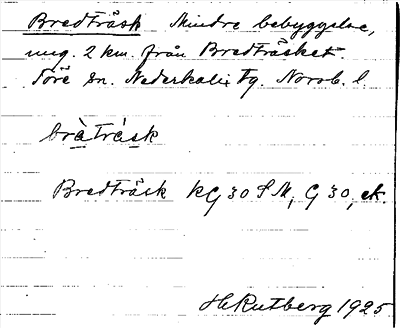 Bredträsk Mindre bebyggelse,
ung. 2 km. från Bredträsket.
Töre sn. Nederkalix tg. Norrb. l.
bràtràsk
Bredträsk KG 30 SM, G 30, ek.
H Rutberg 1925